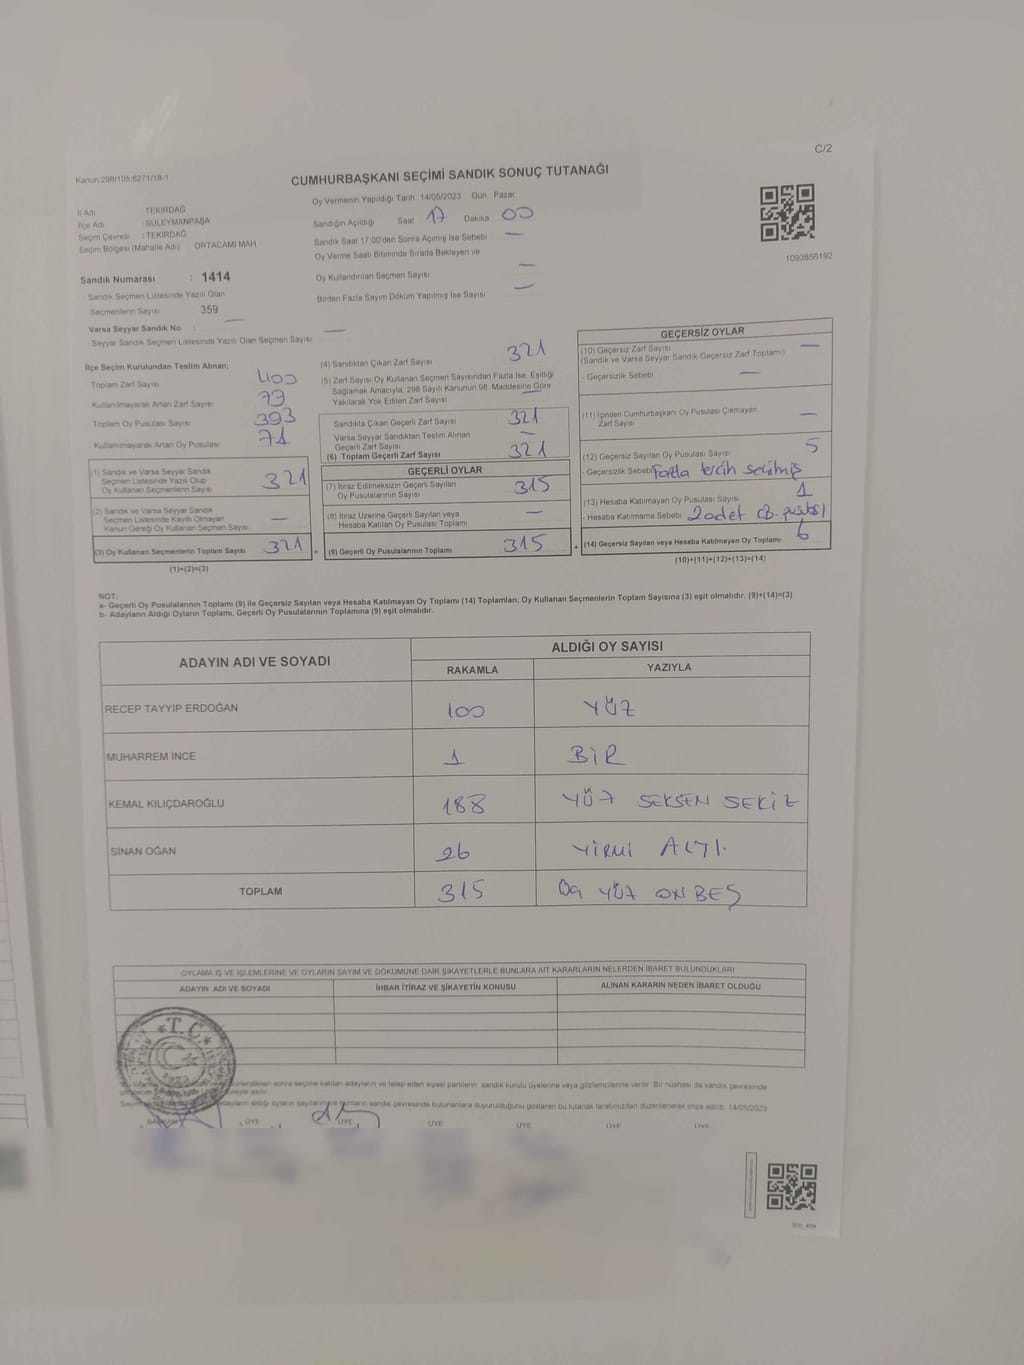 C/2
Kanun:298/105,6271/18-1
CUMHURBAŞKANI SEÇİMİ SANDIK SONUÇ TUTANAĞI
Oy Vermenin Yapıldığı Tarih 14/05/2023 Gün : Pazar
İl Adı TEKİRDAĞ
İlçe Adı SÜLEYMANPAŞA
Seçim Çevresi : TEKİRDAĞ
Seçim Bölgesi (Mahalle Adı) ORTACAMİ MAH.
Sandığın Açıldığı Saat 17 Dakika 00
Sandık Saat 17:00'den Sonra Açılmış İse Sebebi —
Oy Verme Saati Bitiminde Sırada Bekleyen ve
Oy Kullandırılan Seçmen Sayısı —
Birden Fazla Sayım Döküm Yapılmış İse Sayısı —
1093856192
Sandık Numarası : 1414
Sandık Seçmen Listesinde Yazılı Olan
Seçmenlerin Sayısı 359
Varsa Seyyar Sandık No : —
Seyyar Sandık Seçmen Listesinde Yazılı Olan Seçmen Sayısı —
İlçe Seçim Kurulundan Teslim Alınan;
Toplam Zarf Sayısı 400
Kullanılmayarak Artan Zarf Sayısı 79
Toplam Oy Pusulası Sayısı 393
Kullanılmayarak Artan Oy Pusulası 71
(1) Sandık ve Varsa Seyyar Sandık
Seçmen Listesinde Yazılı Olup
Oy Kullanan Seçmenlerin Sayısı 321
(2) Sandık ve Varsa Seyyar Sandık
Seçmen Listesinde Kayıtlı Olmayan
Kanun Gereği Oy Kullanan Seçmen Sayısı —
(3) Oy Kullanan Seçmenlerin Toplam Sayısı 321
(1)+(2)=(3)
(4) Sandıktan Çıkan Zarf Sayısı 321
(5) Zarf Sayısı Oy Kullanan Seçmen Sayısından Fazla İse, Eşitliği
Sağlamak Amacıyla, 298 Sayılı Kanunun 98. Maddesine Göre
Yakılarak Yok Edilen Zarf Sayısı —
Sandıkta Çıkan Geçerli Zarf Sayısı 321
Varsa Seyyar Sandıktan Teslim Alınan
Geçerli Zarf Sayısı —
(6) Toplam Geçerli Zarf Sayısı 321
GEÇERLİ OYLAR
(7) İtiraz Edilmeksizin Geçerli Sayılan
Oy Pusulalarının Sayısı 315
(8) İtiraz Üzerine Geçerli Sayılan veya
Hesaba Katılan Oy Pusulası Toplamı —
= (9) Geçerli Oy Pusulalarının Toplamı 315
GEÇERSİZ OYLAR
(10) Geçersiz Zarf Sayısı —
(Sandık ve Varsa Seyyar Sandık Geçersiz Zarf Toplamı)
- Geçersizlik Sebebi —
(11) İçinden Cumhurbaşkanı Oy Pusulası Çıkmayan
Zarf Sayısı —
(12) Geçersiz Sayılan Oy Pusulası Sayısı 5
- Geçersizlik Sebebi Fazla tercih seçilmiş
(13) Hesaba Katılmayan Oy Pusulası Sayısı 1
- Hesaba Katılmama Sebebi 2 adet CB. puslası
+ (14) Geçersiz Sayılan veya Hesaba Katılmayan Oy Toplamı 6
(10)+(11)+(12)+(13)=(14)
NOT:
a- Geçerli Oy Pusulalarının Toplamı (9) ile Geçersiz Sayılan veya Hesaba Katılmayan Oy Toplamı (14) Toplamları, Oy Kullanan Seçmenlerin Toplam Sayısına (3) eşit olmalıdır. (9)+(14)=(3)
b- Adayların Aldığı Oyların Toplamı, Geçerli Oy Pusulalarının Toplamına (9) eşit olmalıdır.
ADAYIN ADI VE SOYADI
ALDIĞI OY SAYISI
RAKAMLA YAZIYLA
RECEP TAYYİP ERDOĞAN 100 YÜZ
MUHARREM İNCE 1 BİR
KEMAL KILIÇDAROĞLU 188 YÜZ SEKSEN SEKİZ
SİNAN OĞAN 26 YİRMİ ALTI
TOPLAM 315 ÜÇ YÜZ ON BEŞ
OYLAMA İŞ VE İŞLEMLERİNE VE OYLARIN SAYIM VE DÖKÜMÜNE DAİR ŞİKAYETLERLE BUNLARA AİT KARARLARIN NELERDEN İBARET BULUNDUKLARI
ADAYIN ADI VE SOYADI İHBAR İTİRAZ VE ŞİKAYETİN KONUSU ALINAN KARARIN NEDEN İBARET OLDUĞU
T.C.
sonra seçime katılan adayların ve talep eden siyasi partilerin sandık kurulu üyelerine veya gözlemcilerine verilir. Bir nüshası da sandık çevresinde
adayların aldığı oyların sandık çevresinde bulunanlara duyurulduğunu gösteren bu tutanak tarafımızdan düzenlenerek imza edildi. 14/05/2023
BAŞKAN ÜYE ÜYE ÜYE ÜYE ÜYE ÜYE